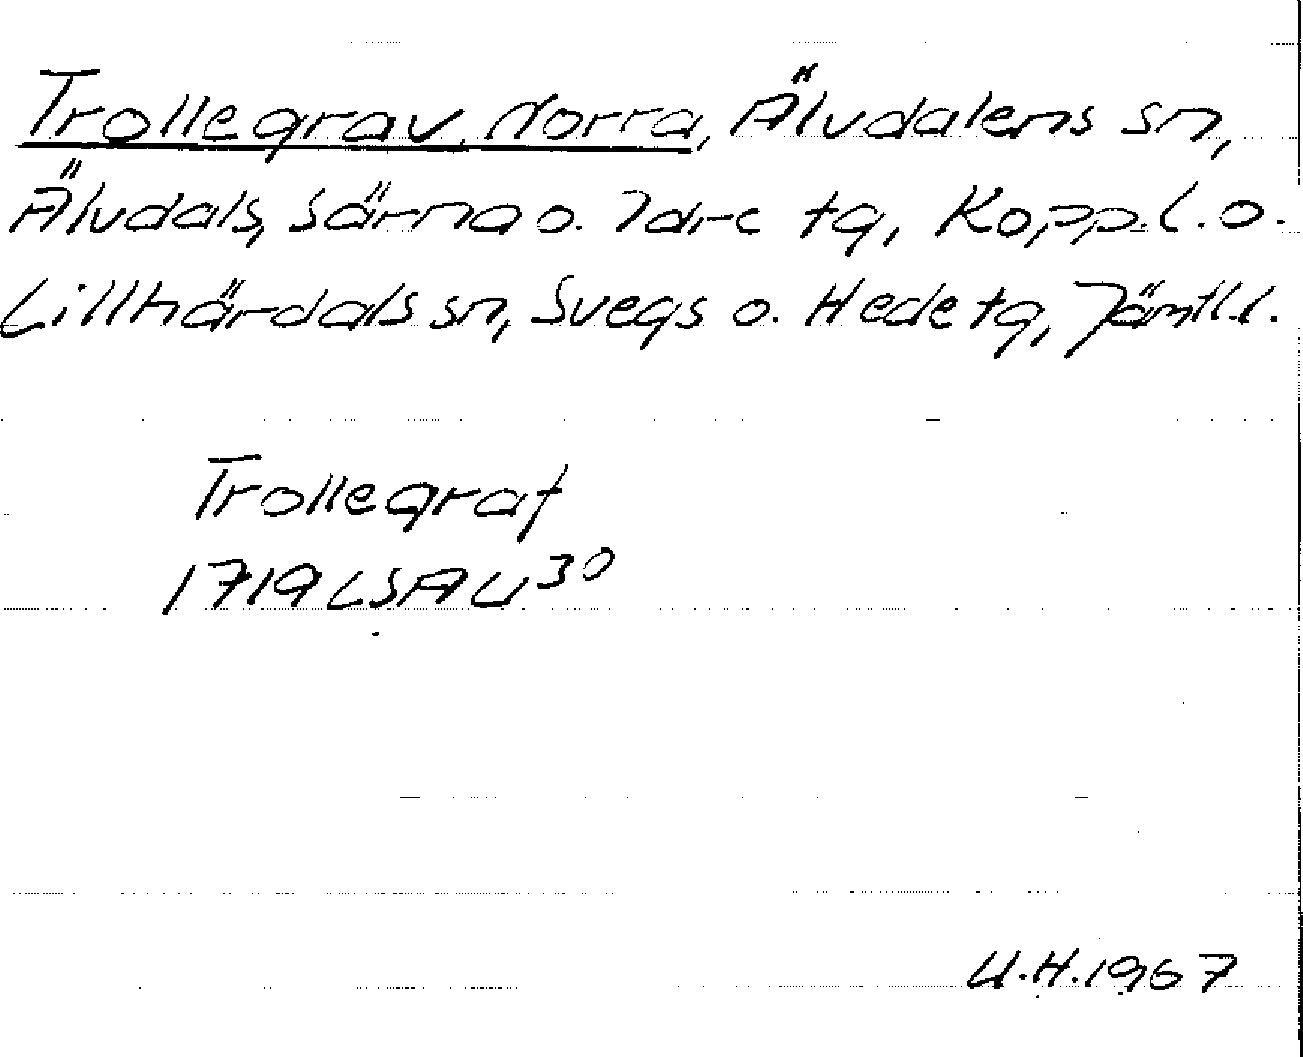 Trollegrav, Norra, Älvdalens sn,
Älvdals, Särna o. Idre tg, Kopp.l. o.
Lillhärdals sn, Svegs o. Hede tg, Jämtl.l.
Trollegraf
1719 LSA U³⁰
U.H. 1967